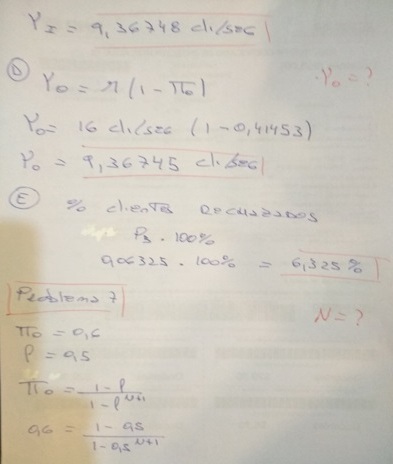 γI = 9,36748 cli/seg
D
γo = ?
γo = μ (1 - Πo)
γo = 16 cli/seg (1 - 0,41453)
γo = 9,36745 cli/seg
E
% clientes rechazados
P3 . 100%
0,06325 . 100% = 6,325 %
Problema 7
N = ?
Πo = 0,6
ρ = 0,5
Πo = 1 - ρ / 1 - ρ^N+1
0,6 = 1 - 0,5 / 1 - 0,5^N+1